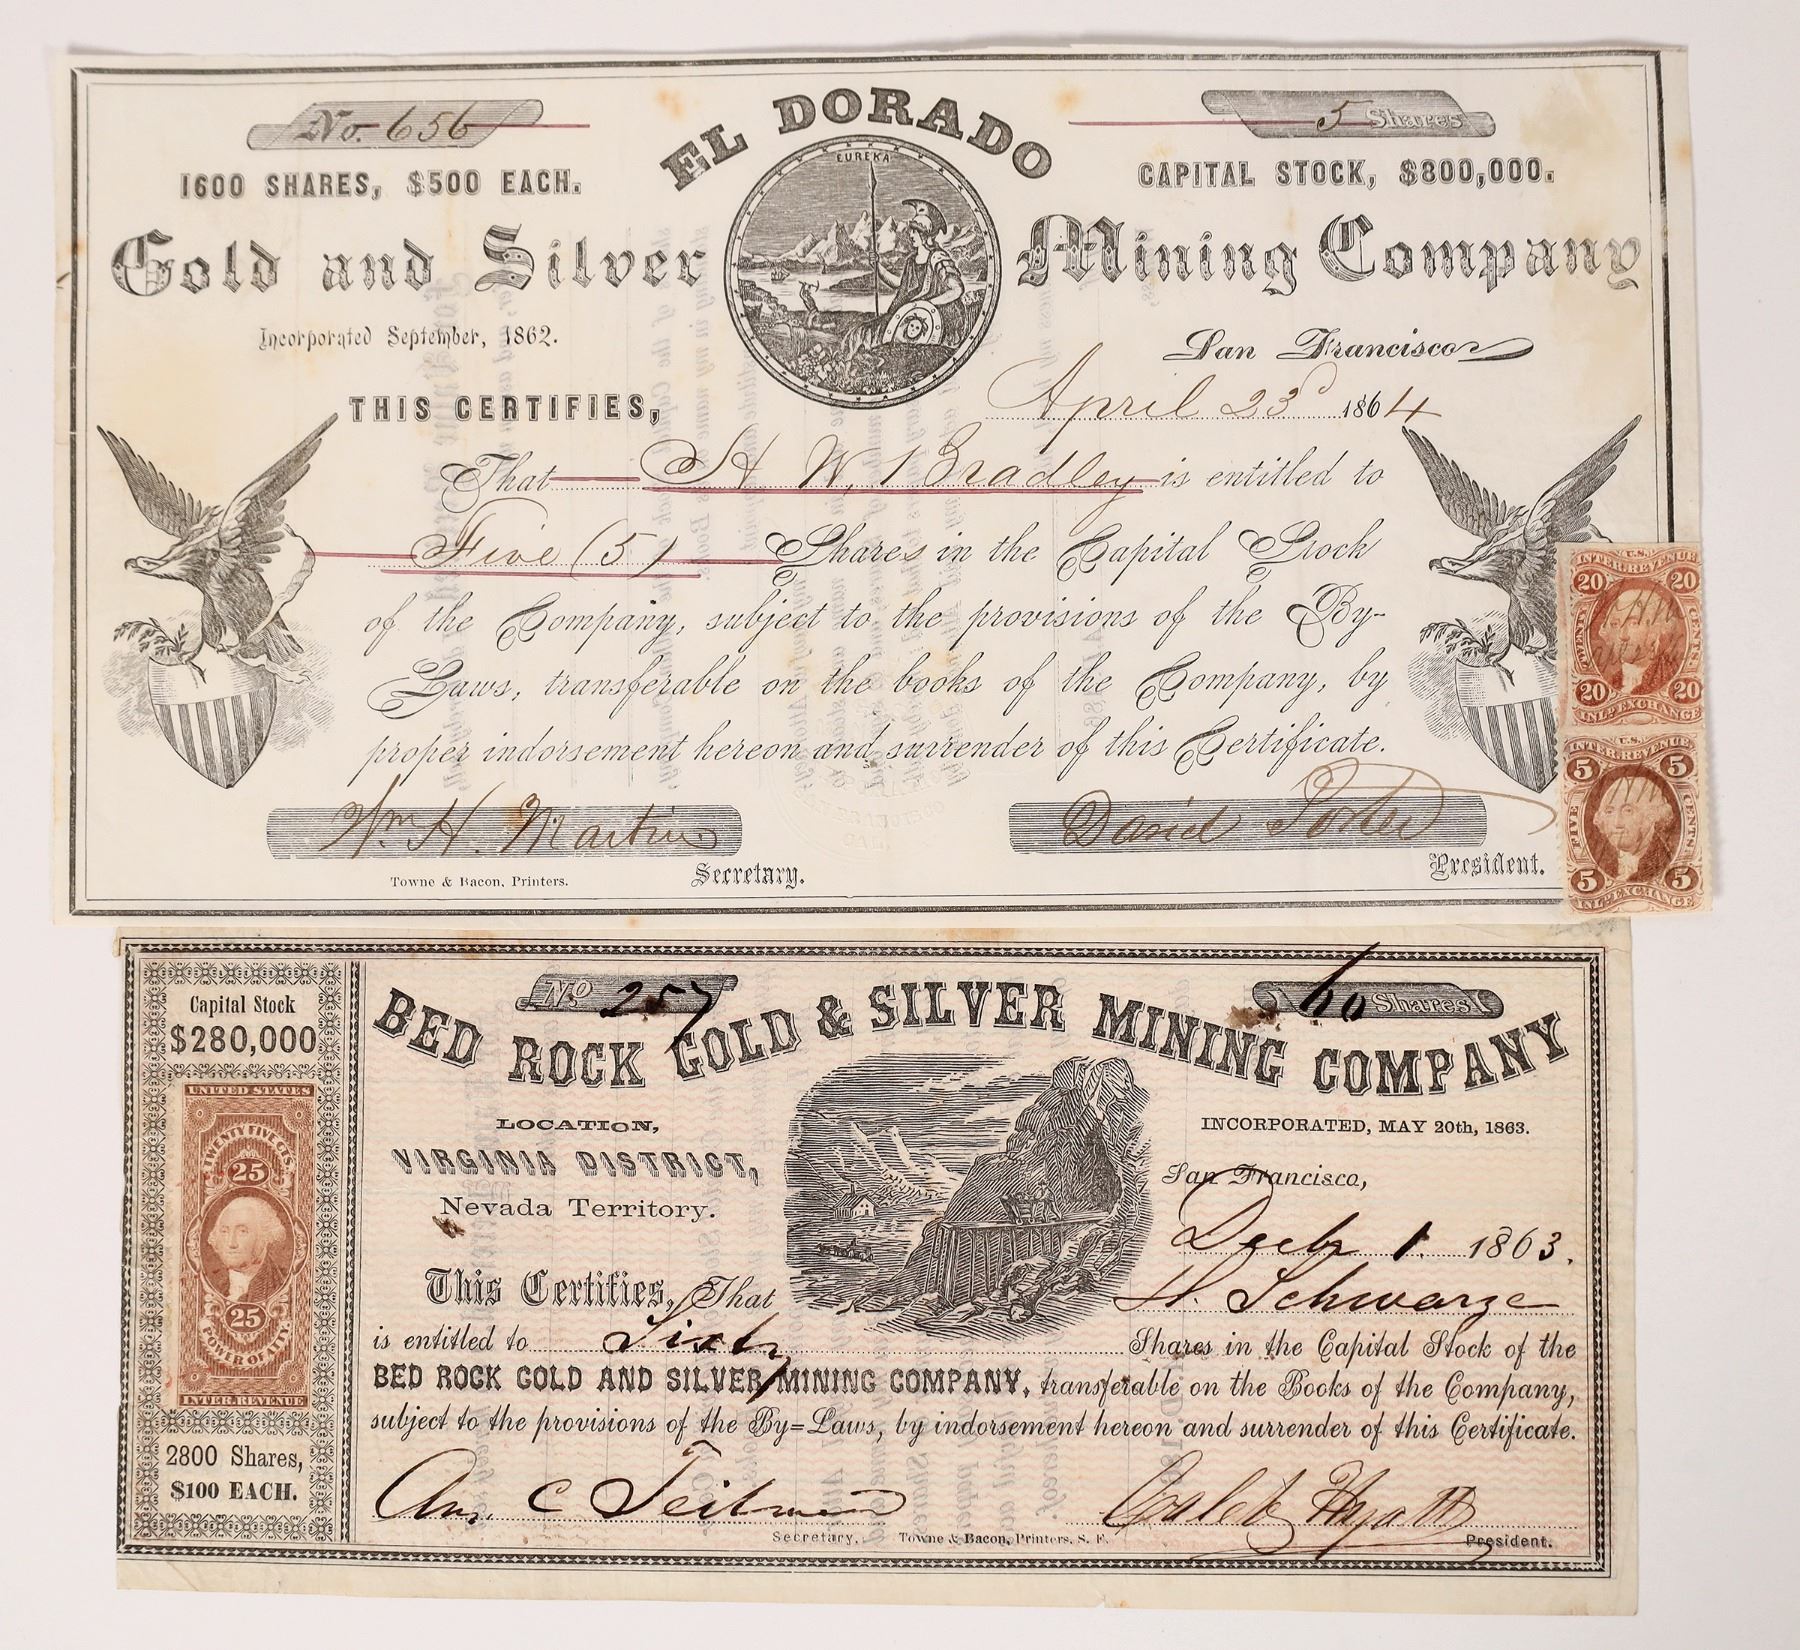 No. 656
EL DORADO
5 Shares
1600 SHARES, $500 EACH.
EUREKA
CAPITAL STOCK, $800,000.
Gold and Silver Mining Company
Incorporated September, 1862.
San Francisco
April 23d 1864
THIS CERTIFIES,
That H W Bradley is entitled to
Five (5) Shares in the Capital Stock
of the Company, subject to the provisions of the By-
Laws, transferable on the books of the Company, by
proper indorsement hereon and surrender of this Certificate.
Wm H. Martin
Secretary.
David Porter
President.
Towne & Bacon, Printers.
U.S.
INTER. REVENUE
20 20
TWENTY CENTS.
20 20
INL. EXCHANGE
U.S.
INTER. REVENUE
5 5
FIVE CENTS
5 5
INL. EXCHANGE
Capital Stock
$280,000
UNITED STATES
TWENTY FIVE CTS.
25
25
POWER OF ATTY.
INTER. REVENUE
2800 Shares,
$100 EACH.
No 257
60 Shares
BED ROCK GOLD & SILVER MINING COMPANY
LOCATION,
VIRGINIA DISTRICT,
Nevada Territory.
INCORPORATED, MAY 20th, 1863.
San Francisco,
Decbr 1 1863.
This Certifies, That H. Schwarze
is entitled to Sixty Shares in the Capital Stock of the
BED ROCK GOLD AND SILVER MINING COMPANY, transferable on the Books of the Company,
subject to the provisions of the By=Laws, by indorsement hereon and surrender of this Certificate.
Caleb Hyatt
Secretary.
Towne & Bacon, Printers, S. F.
President.